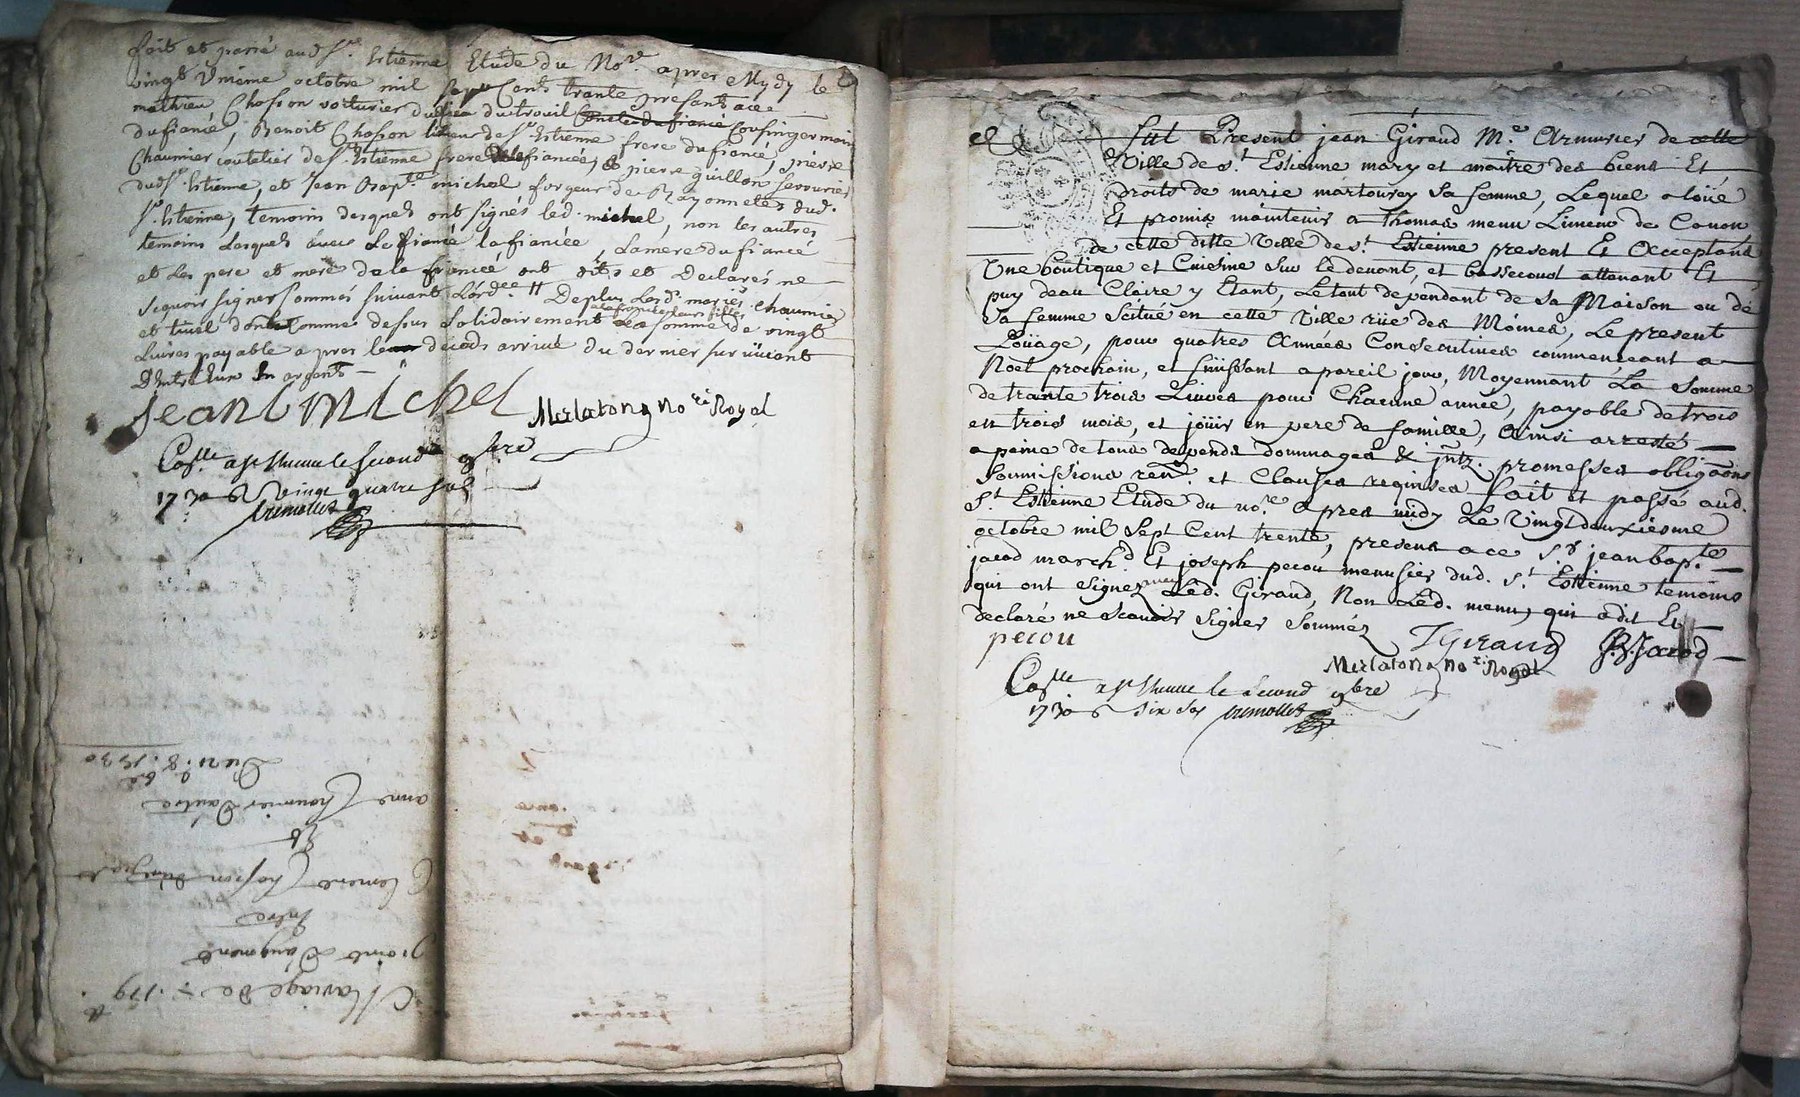 fait et passé aud St. Estienne Etude du No.re apres Mydy le
vingt Unieme octobre mil sept Cents trante presants a ce
mathieu Chosson voiturier du lieu du treuil Cousin germain
du fiancé, Benoit Chosson limeur de St. Estienne frere du fiancé, pierre
Chaumier coutelier de St. Estienne frere de la fiancée, & pierre guillon serrurier
dud St. Estienne, et Jean Bap.te michel forgeur de Bayonnetes dud.
St. Estienne, temoins desquels ont signés led. michel, non les autres
temoins Lesquels avec Le fiancé la fiancée, La mere du fiancé
et Les pere et mere de la fiancée ont dits et Declarés ne
scavoir signer sommés suivant L'ord.ce // De plus Lesd. mariés chaumier
et leurs filles
et donne Comme dessus solidairement La somme de vingt
Livres payable apres le decods arrivé du dernier survivant
D'Entre Eux En argent
Jean B Michel Merlaton No.re Royal
Con.lle a St Etienne le second 9bre
1730 R vingt quatre sols
tremollet
Mariage de # 179.
joint d'augment
Entre
Clement Chosson d'une part
Et
anne Chaumier d'autre
Du 21. 8.bre 1730
Fut Present jean Giraud M.e Armurier de cette
Ville de St. Estienne mary et maitre des biens Et
Droits de marie martourey Sa femme, Lequel a loüé
Et promis maintenir a Thomas menu Limeur de Canon
de cette ditte Ville de St. Estienne present Et Acceptant
Une boutique et Cuisine sur le devant, et bassecourt attenant Et
puy deau Claire y Etant, Le tout dependant de Sa Maison ou de
Sa femme Scitué en cette Ville rüe des Moines, Le present
Loüage, pour quatres Années Consecutives commençeant a
Noel prochain, et finissant a pareil jour, Moyennant La Somme
de trante trois Livres pour Chacune année, payable de trois
en trois mois, et joüir en pere de famille, Ainsi arresté
a peine de tous depends dommages & jntz. promesses obliga͠ons
Soumissions ren͠on. et Clauses requises fait et passé aud.
St. Estienne Etude du no.re apres midy Le Vingt deuxiesme
octobre mil Sept Cent trente, presens a ce Sr. jean bap.te
jacod march.d Et joseph pecou menusier dud. St. Estienne temoins
qui ont Signez avec Led. Giraud, Non Led. menu, qui a dit Et
declaré ne Scavoir Signer Sommez
pecou J Giraud JB Jacod
Merlaton No.re Royal
Con.lle a St Etienne le second 9bre
1730 R six sols tremollet